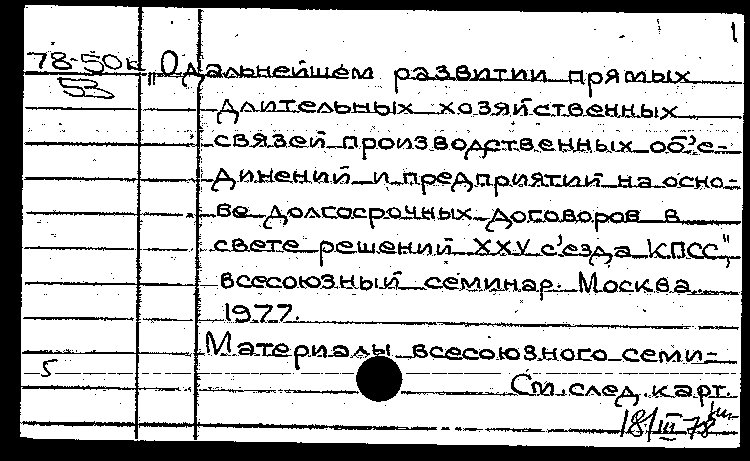 1
78-50к
53
„О дальнейшем развитии прямых
длительных хозяйственных
связей производственных об'е-
динений и предприятий на осно-
ве долгосрочных договоров в
свете решений XXV с'езда КПСС",
всесоюзный семинар. Москва
1977.
Материалы всесоюзного семи-
5
См. след. карт.
18/III 78